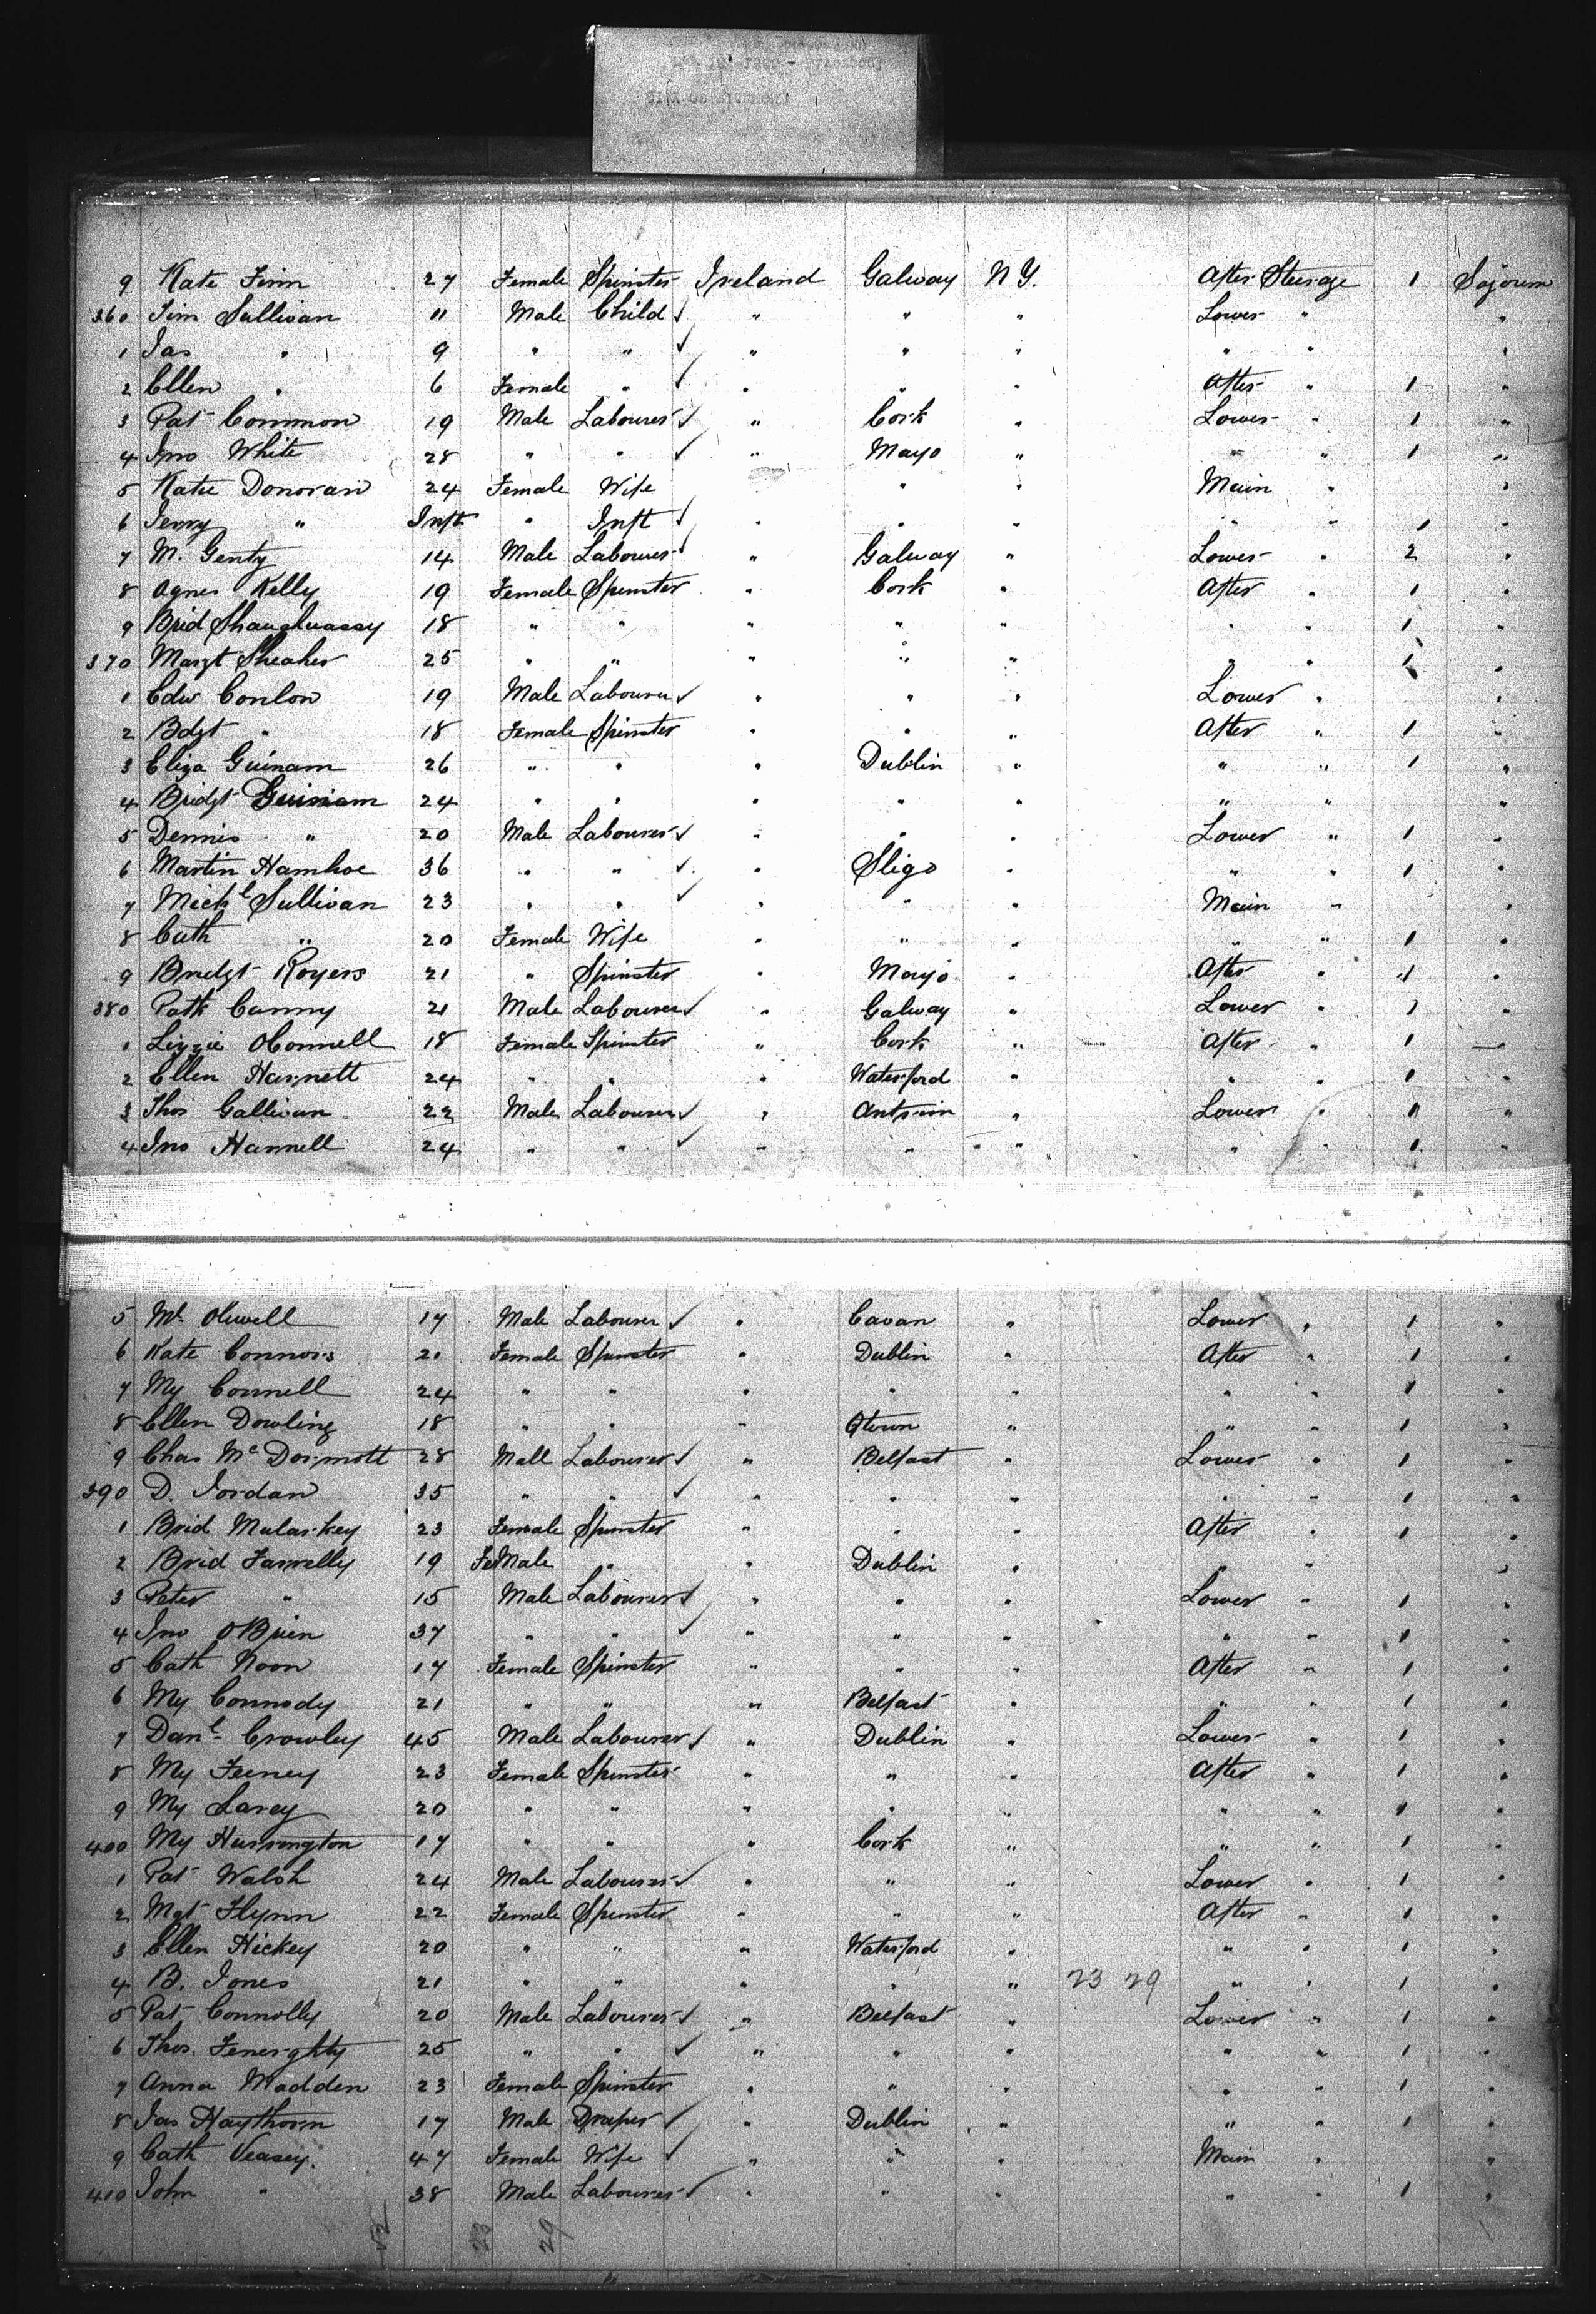 9 Kate Finn 27 Female Spinster Ireland Galway N Y. After Steerage 1 Sojourn
360 Jim Sullivan 11 Male Child ✓ " " " Lower " "
1 Jas " 9 " " ✓ " " " " " "
2 Ellen " 6 Female " ✓ " " " After " 1 "
3 Pat Common 19 Male Labourer ✓ " Cork " Lower " 1 "
4 Jno White 28 " " ✓ " Mayo " " " 1 "
5 Katie Donovan 24 Female Wife " " Main " "
6 Jerry " Inft " Inft ✓ " " " " " 1 "
7 M. Genty 14 Male Labourer ✓ " Galway " Lower " 2 "
8 Agnes Kelly 19 Female Spinster " Cork " After " 1 "
9 Brid Shaughnassy 18 " " " " " " " 1 "
370 Margt Sheaher 25 " " " " " " " 1 "
1 Edw Conlon 19 Male Labourer ✓ " " " Lower " "
2 Bdgt " 18 Female Spinster " " " After " 1 "
3 Eliza Guinam 26 " " " Dublin " " " 1 "
4 Bridgt Guinam 24 " " " " " " " "
5 Dennis " 20 Male Labourer ✓ " " " Lower " 1 "
6 Martin Hamhoe 36 " " ✓ " Sligo " " " 1 "
7 Michl Sullivan 23 " " ✓ " " " Main " "
8 Cath " 20 Female Wife " " " " " 1 "
9 Bridgt Rogers 21 " Spinster " Mayo " After " 1 "
380 Patk Canny 21 Male Labourer ✓ " Galway " Lower " 1 "
1 Lizzie OConnell 18 Female Spinster " Cork " After " 1 "
2 Ellen Harnett 24 " " " Waterford " " " 1 "
3 Thos Gallivan 22 Male Labourer ✓ " Antrim " Lower " 1 "
4 Jno Hannell 24 " " ✓ " " " " " 1 "
5 Ml Olwell 17 Male Labourer ✓ " Cavan " Lower " 1 "
6 Kate Connors 21 Female Spinster " Dublin " After " 1 "
7 My Connell 24 " " " " " " " 1 "
8 Ellen Dowling 18 " " " Qtown " " " 1 "
9 Chas McDormott 28 Mall Labourer ✓ " Belfast " Lower " 1 "
390 D. Jordan 35 " " ✓ " " " " " 1 "
1 Brid Mularkey 23 Female Spinster " " " After " 1 "
2 Brid Farrelly 19 FeMale " " Dublin " " " "
3 Peter " 15 Male Labourer ✓ " " " Lower " 1 "
4 Jno OBrien 37 " " ✓ " " " " " 1 "
5 Cath Noon 17 Female Spinster " " " After " 1 "
6 My Connody 21 " " " Belfast " " " 1 "
7 Danl Crowley 45 Male Labourer ✓ " Dublin " Lower " 1 "
8 My Feeney 23 Female Spinster " " " After " 1 "
9 My Lavey 20 " " " " " " " 1 "
400 My Hurrington 17 " " " Cork " " " 1 "
1 Pat Walsh 24 Male Labourer ✓ " " " Lower " 1 "
2 Mgt Flynn 22 Female Spinster " " " After " 1 "
3 Ellen Hickey 20 " " " Waterford " " " 1 "
4 B. Jones 21 " " " " " 23 29 " " 1 "
5 Pat Connolly 20 Male Labourer ✓ " Belfast " Lower " 1 "
6 Thos. Fenerghty 25 " " ✓ " " " " " 1 "
7 Anna Madden 23 Female Spinster " " " " " 1 "
8 Jas Haythorn 17 Male Draper ✓ " Dublin " " " 1 "
9 Cath Veasey. 47 Female Wife ✓ " " " Main " "
410 John " 38 Male Labourer ✓ " " " " " 1 "
52 23 29